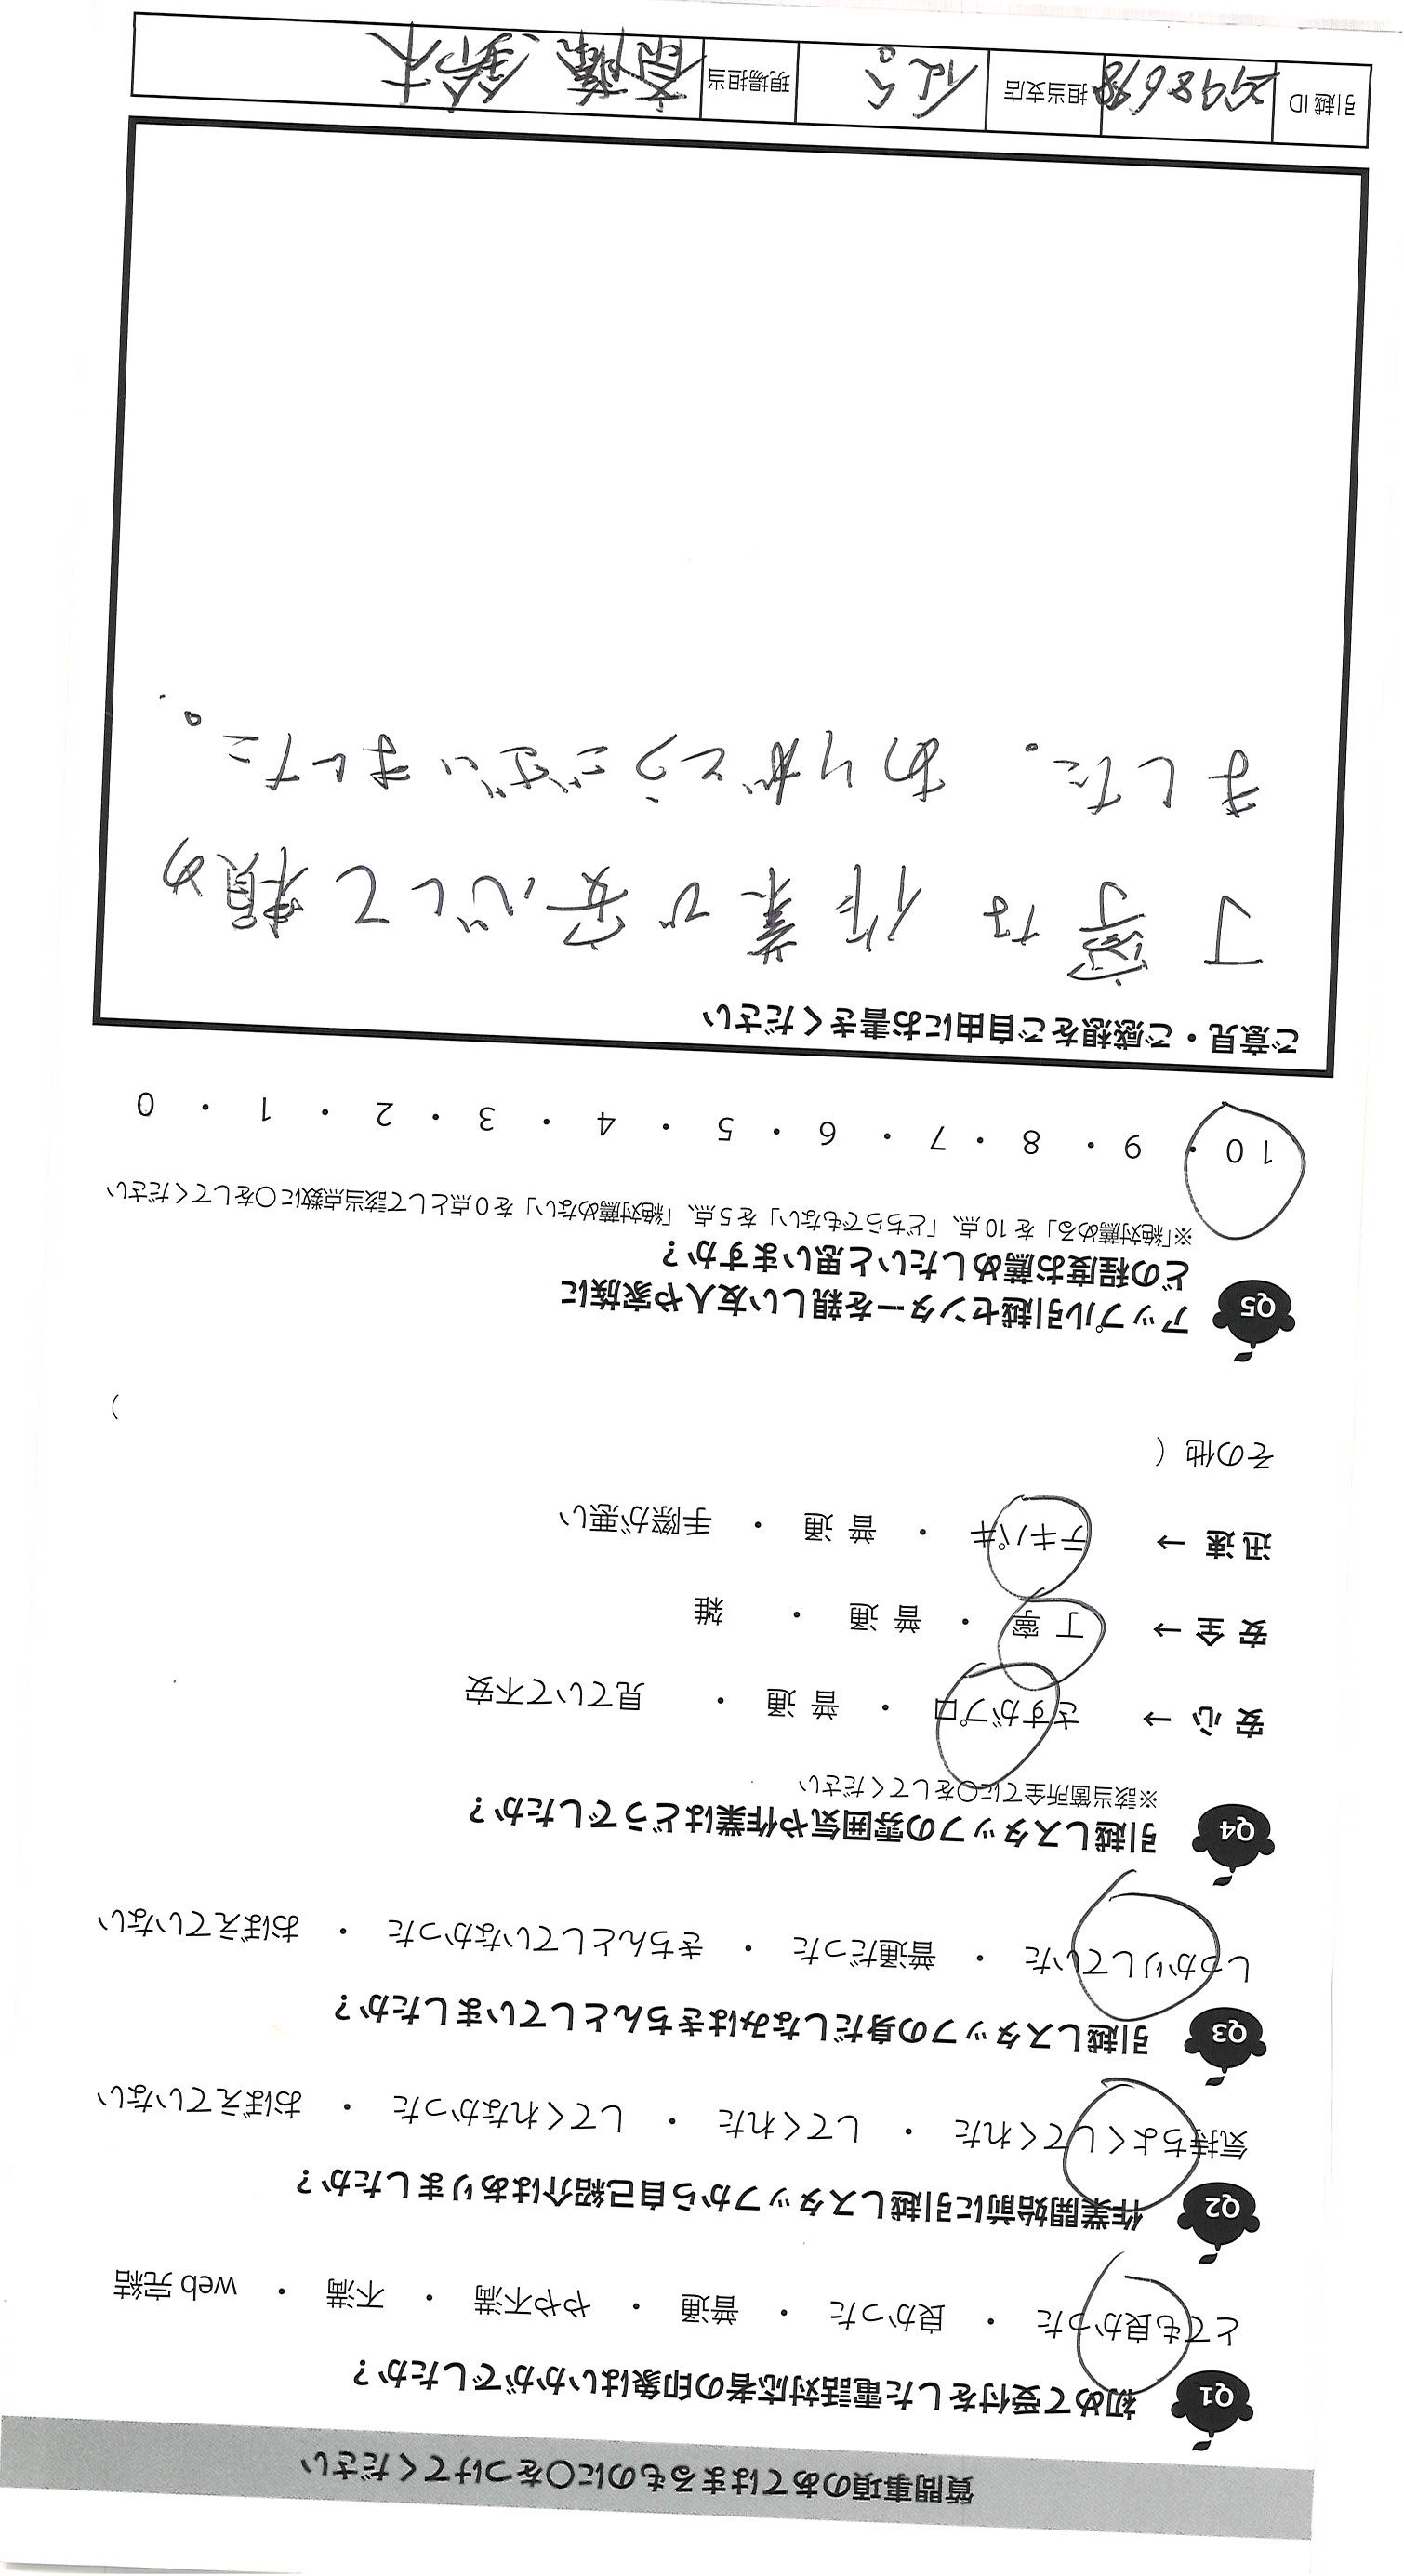 質問事項のあてはまるものに〇をつけてください
Q1 初めて受付をした電話対応者の印象はいかがでしたか?
とても良かった ・ 良かった ・ 普通 ・ やや不満 ・ 不満 ・ web 完結
Q2 作業開始前に引越しスタッフから自己紹介はありましたか?
気持ちよくしてくれた ・ してくれた ・ してくれなかった ・ おぼえていない
Q3 引越しスタッフの身だしなみはきちんとしていましたか?
しっかりしていた ・ 普通だった ・ きちんとしていなかった ・ おぼえていない
Q4 引越しスタッフの雰囲気や作業はどうでしたか?
※該当箇所全てに〇をしてください
安心 → さすがプロ ・ 普通 ・ 見ていて不安
安全 → 丁寧 ・ 普通 ・ 雑
迅速 → テキパキ ・ 普通 ・ 手際が悪い
その他 ( )
Q5 アップル引越センターを親しい友人や家族に
どの程度お薦めしたいと思いますか?
※「絶対薦める」を 10 点、「どちらでもない」を 5 点、「絶対薦めない」を 0 点として該当点数に〇をしてください
10 ・ 9 ・ 8 ・ 7 ・ 6 ・ 5 ・ 4 ・ 3 ・ 2 ・ 1 ・ 0
ご意見・ご感想をご自由にお書きください
丁寧な作業で安心して頼め
ました。ありがとうございました。
引越 ID 担当支店 仙台 現場担当 斎藤 鈴木